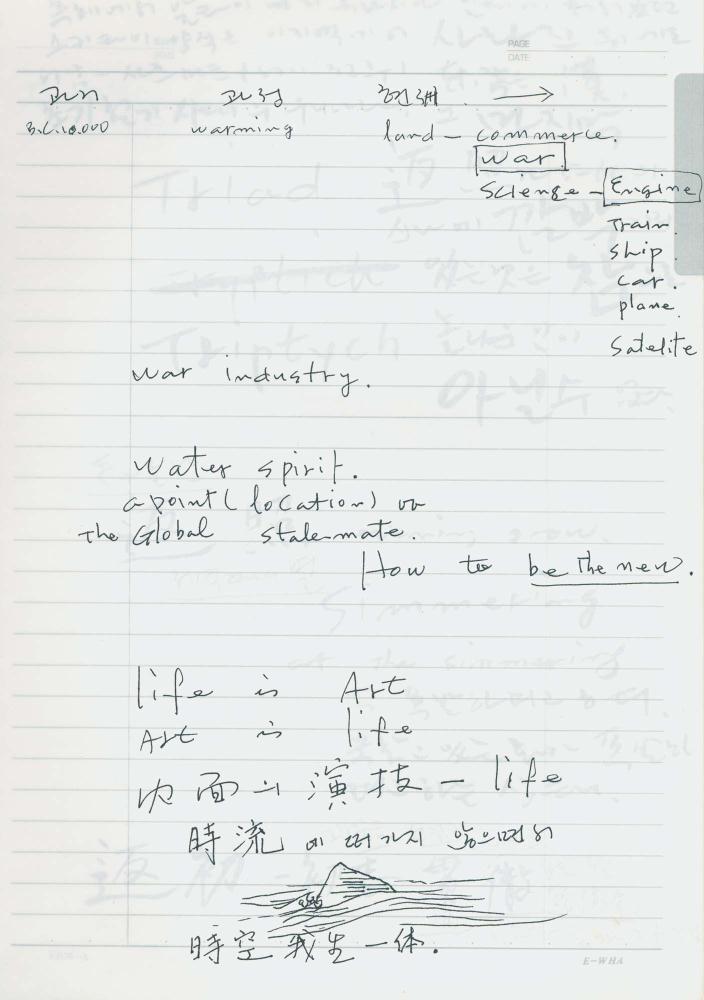 PAGE
DATE
과거 과정 현세 →
B.C.10.000 warming land – commerce.
war.
Science – Engine
Train.
ship.
car.
plane.
Satelite
war industry.
Water spirit.
a point (location) on
The Global stalemate.
How to be the new.
life is Art
Art is life
内面의 演技 – life
時流에 떠가지 않으면서
時空我生一体.
E-WHA